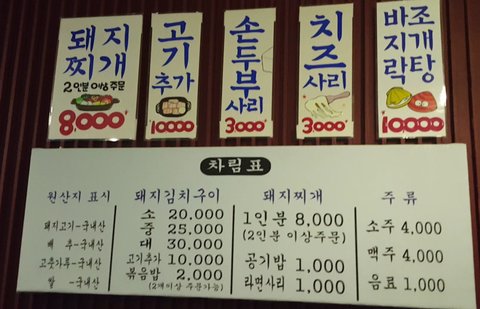 돼지
찌개
2인분 이상 주문
8,000
고기
추가
10000
손두부
사리
3000
치즈
사리
3000
바지락
조개탕
10000
차림표
원산지 표시
돼지고기-국내산
배 추-국내산
고춧가루-국내산
쌀 -국내산
돼지김치구이
소 20,000
중 25,000
대 30,000
고기추가 10,000
볶음밥 2,000
(2개이상 주문가능)
돼지찌개
1인분 8,000
(2인분 이상주문)
공기밥 1,000
라면사리 1,000
주 류
소주 4,000
맥주 4,000
음료 1,000